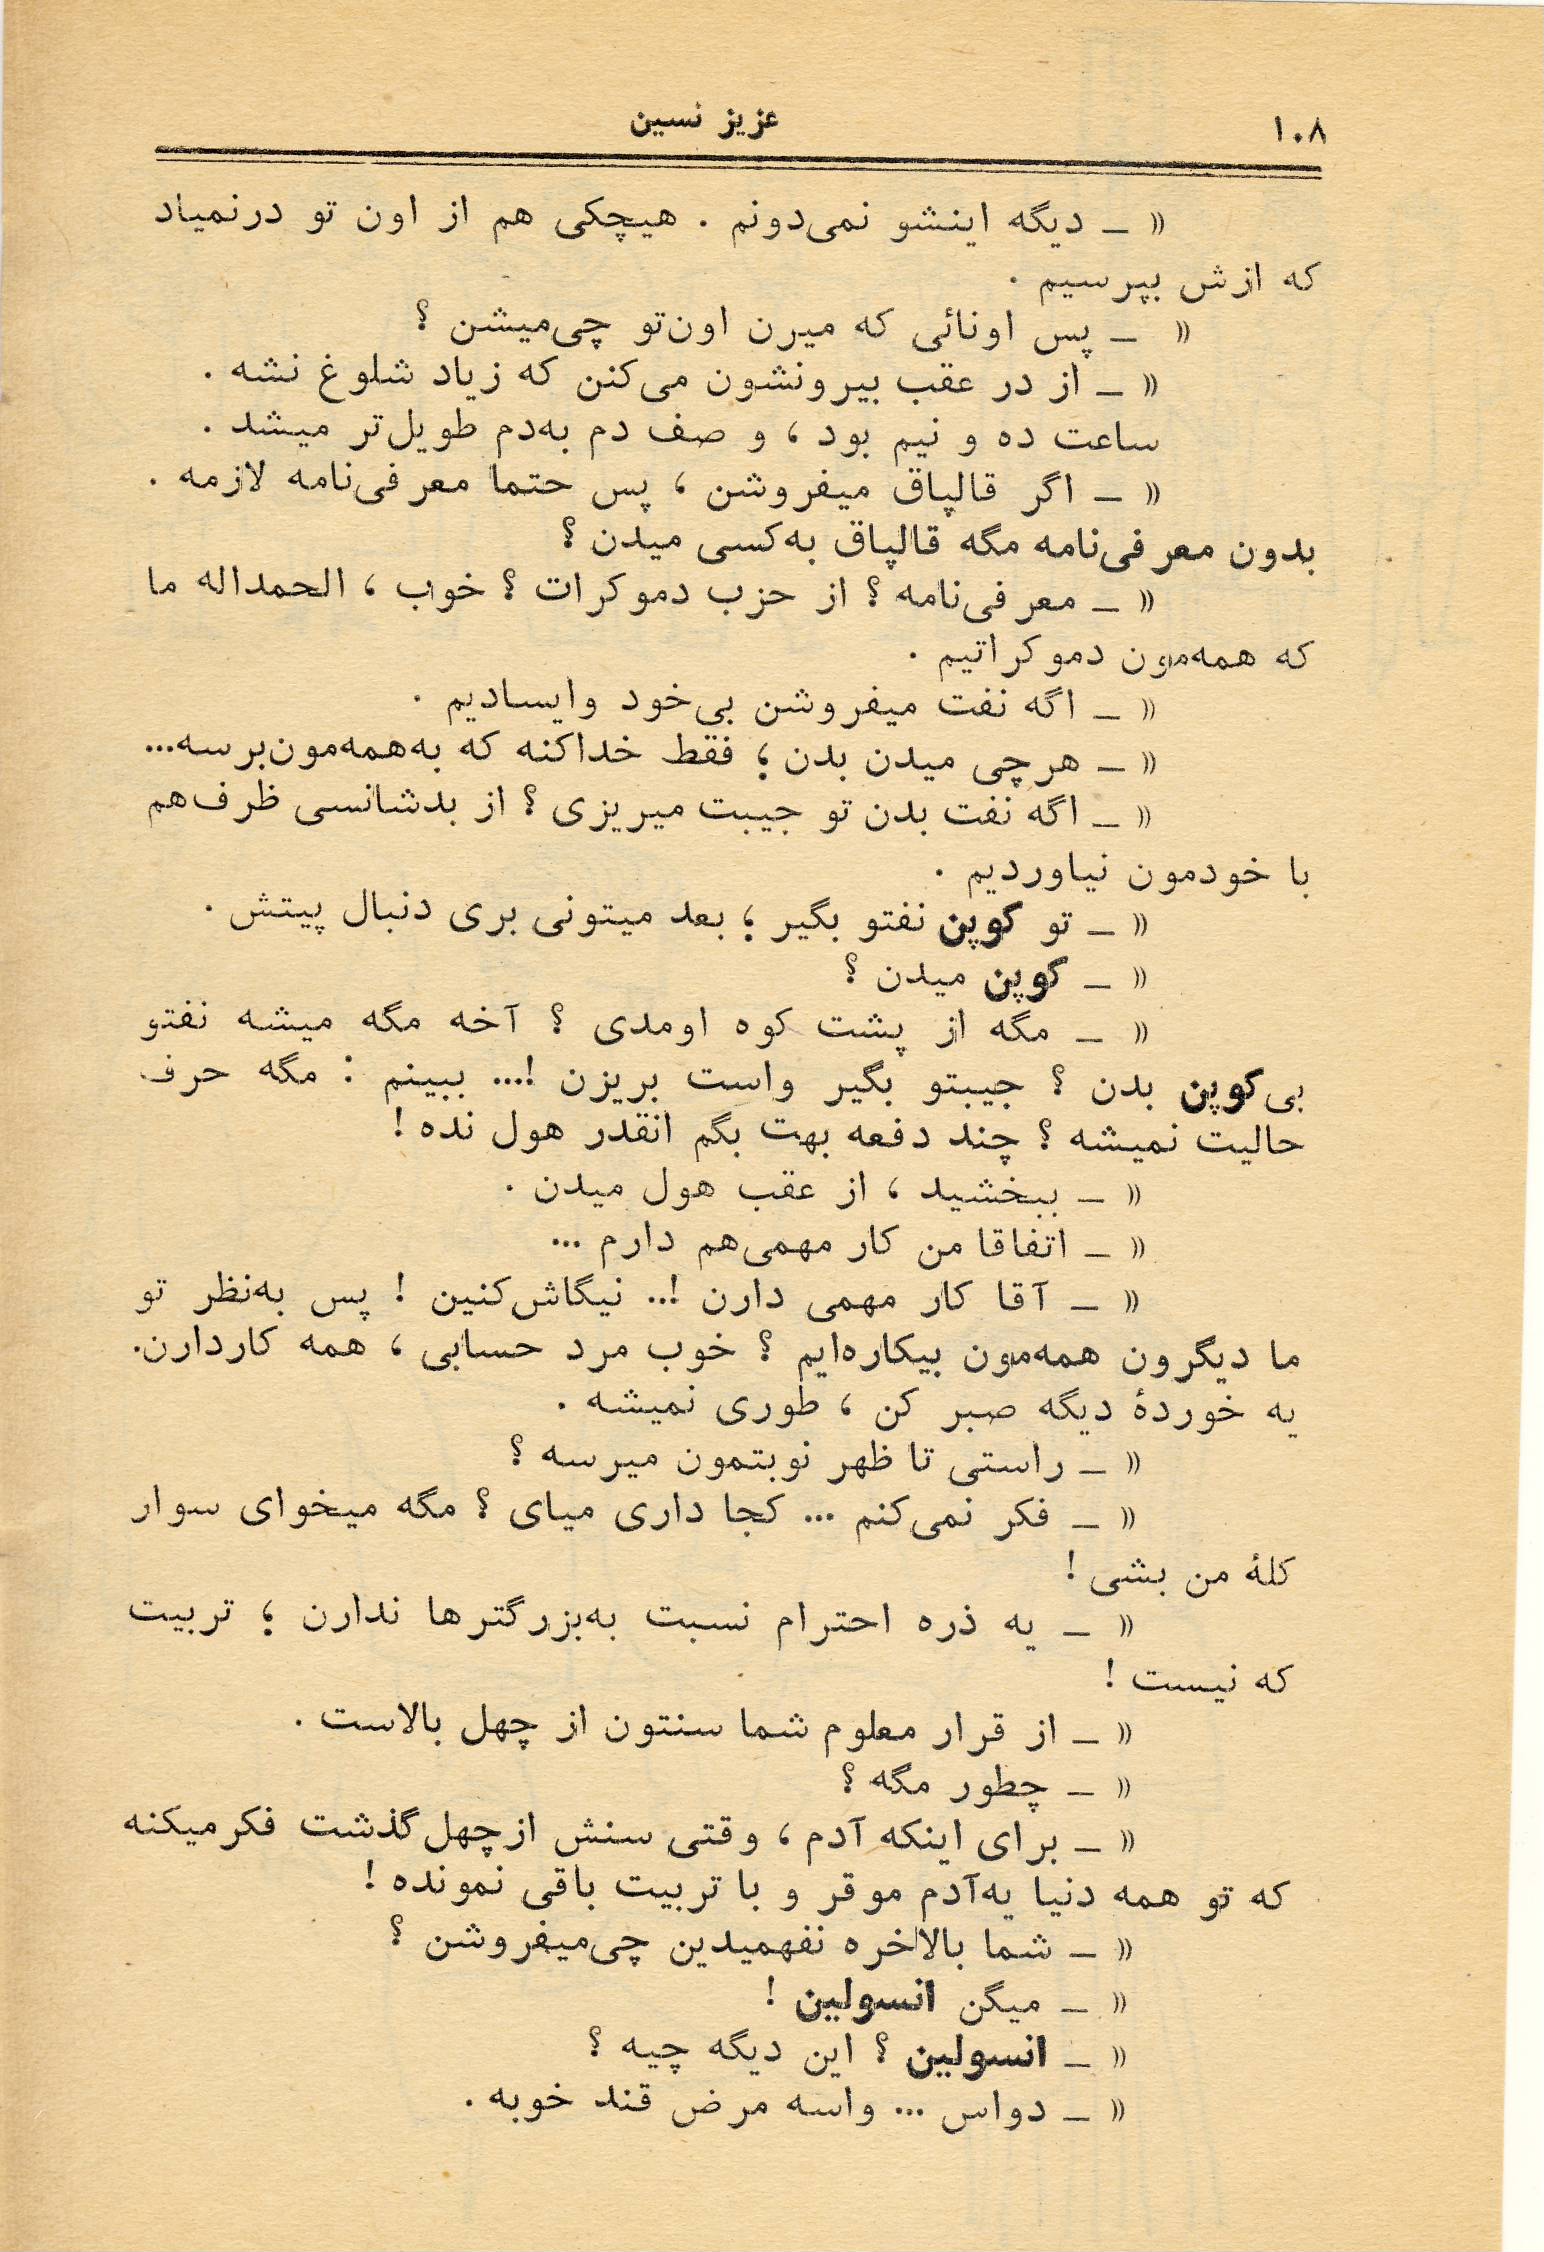 ۱۰۸
عزیز نسین
« ــ دیگه اینشو نمی‌دونم . هیچکی هم از اون تو درنمیاد
که ازش بپرسیم .
« ــ پس اونائی که میرن اون‌تو چی‌میشن ؟
« ــ از در عقب بیرونشون می‌کنن که زیاد شلوغ نشه .
ساعت ده و نیم بود ، و صف دم به‌دم طویل‌تر میشد .
« ــ اگر قالپاق میفروشن ، پس حتما معرفی‌نامه لازمه .
بدون معرفی‌نامه مگه قالپاق به‌کسی میدن ؟
« ــ معرفی‌نامه ؟ از حزب دموکرات ؟ خوب ، الحمداله ما
که همه‌مون دموکراتیم .
« ــ اگه نفت میفروشن بی‌خود وایسادیم .
« ــ هرچی میدن بدن ؛ فقط خداکنه که به‌همه‌مون‌برسه...
« ــ اگه نفت بدن تو جیبت میریزی ؟ از بدشانسی ظرف‌هم
با خودمون نیاوردیم .
« ــ تو کوپن نفتو بگیر ؛ بعد میتونی بری دنبال پیتش .
« ــ کوپن میدن ؟
« ــ مگه از پشت کوه اومدی ؟ آخه مگه میشه نفتو
بی‌کوپن بدن ؟ جیبتو بگیر واست بریزن !... ببینم : مگه حرف
حالیت نمیشه ؟ چند دفعه بهت بگم انقدر هول نده !
« ــ ببخشید ، از عقب هول میدن .
« ــ اتفاقا من کار مهمی‌هم دارم ...
« ــ آقا کار مهمی دارن !.. نیگاش‌کنین ! پس به‌نظر تو
ما دیگرون همه‌مون بیکاره‌ایم ؟ خوب مرد حسابی ، همه کاردارن.
یه خوردهٔ دیگه صبر کن ، طوری نمیشه .
« ــ راستی تا ظهر نوبتمون میرسه ؟
« ــ فکر نمی‌کنم ... کجا داری میای ؟ مگه میخوای سوار
کلهٔ من بشی !
« ــ یه ذره احترام نسبت به‌بزرگترها ندارن ؛ تربیت
که نیست !
« ــ از قرار معلوم شما سنتون از چهل بالاست .
« ــ چطور مگه ؟
« ــ برای اینکه آدم ، وقتی سنش ازچهل‌گذشت فکرمیکنه
که تو همه دنیا یه‌آدم موقر و با تربیت باقی نمونده !
« ــ شما بالاخره نفهمیدین چی‌میفروشن ؟
« ــ میگن انسولین !
« ــ انسولین ؟ این دیگه چیه ؟
« ــ دواس ... واسه مرض قند خوبه .